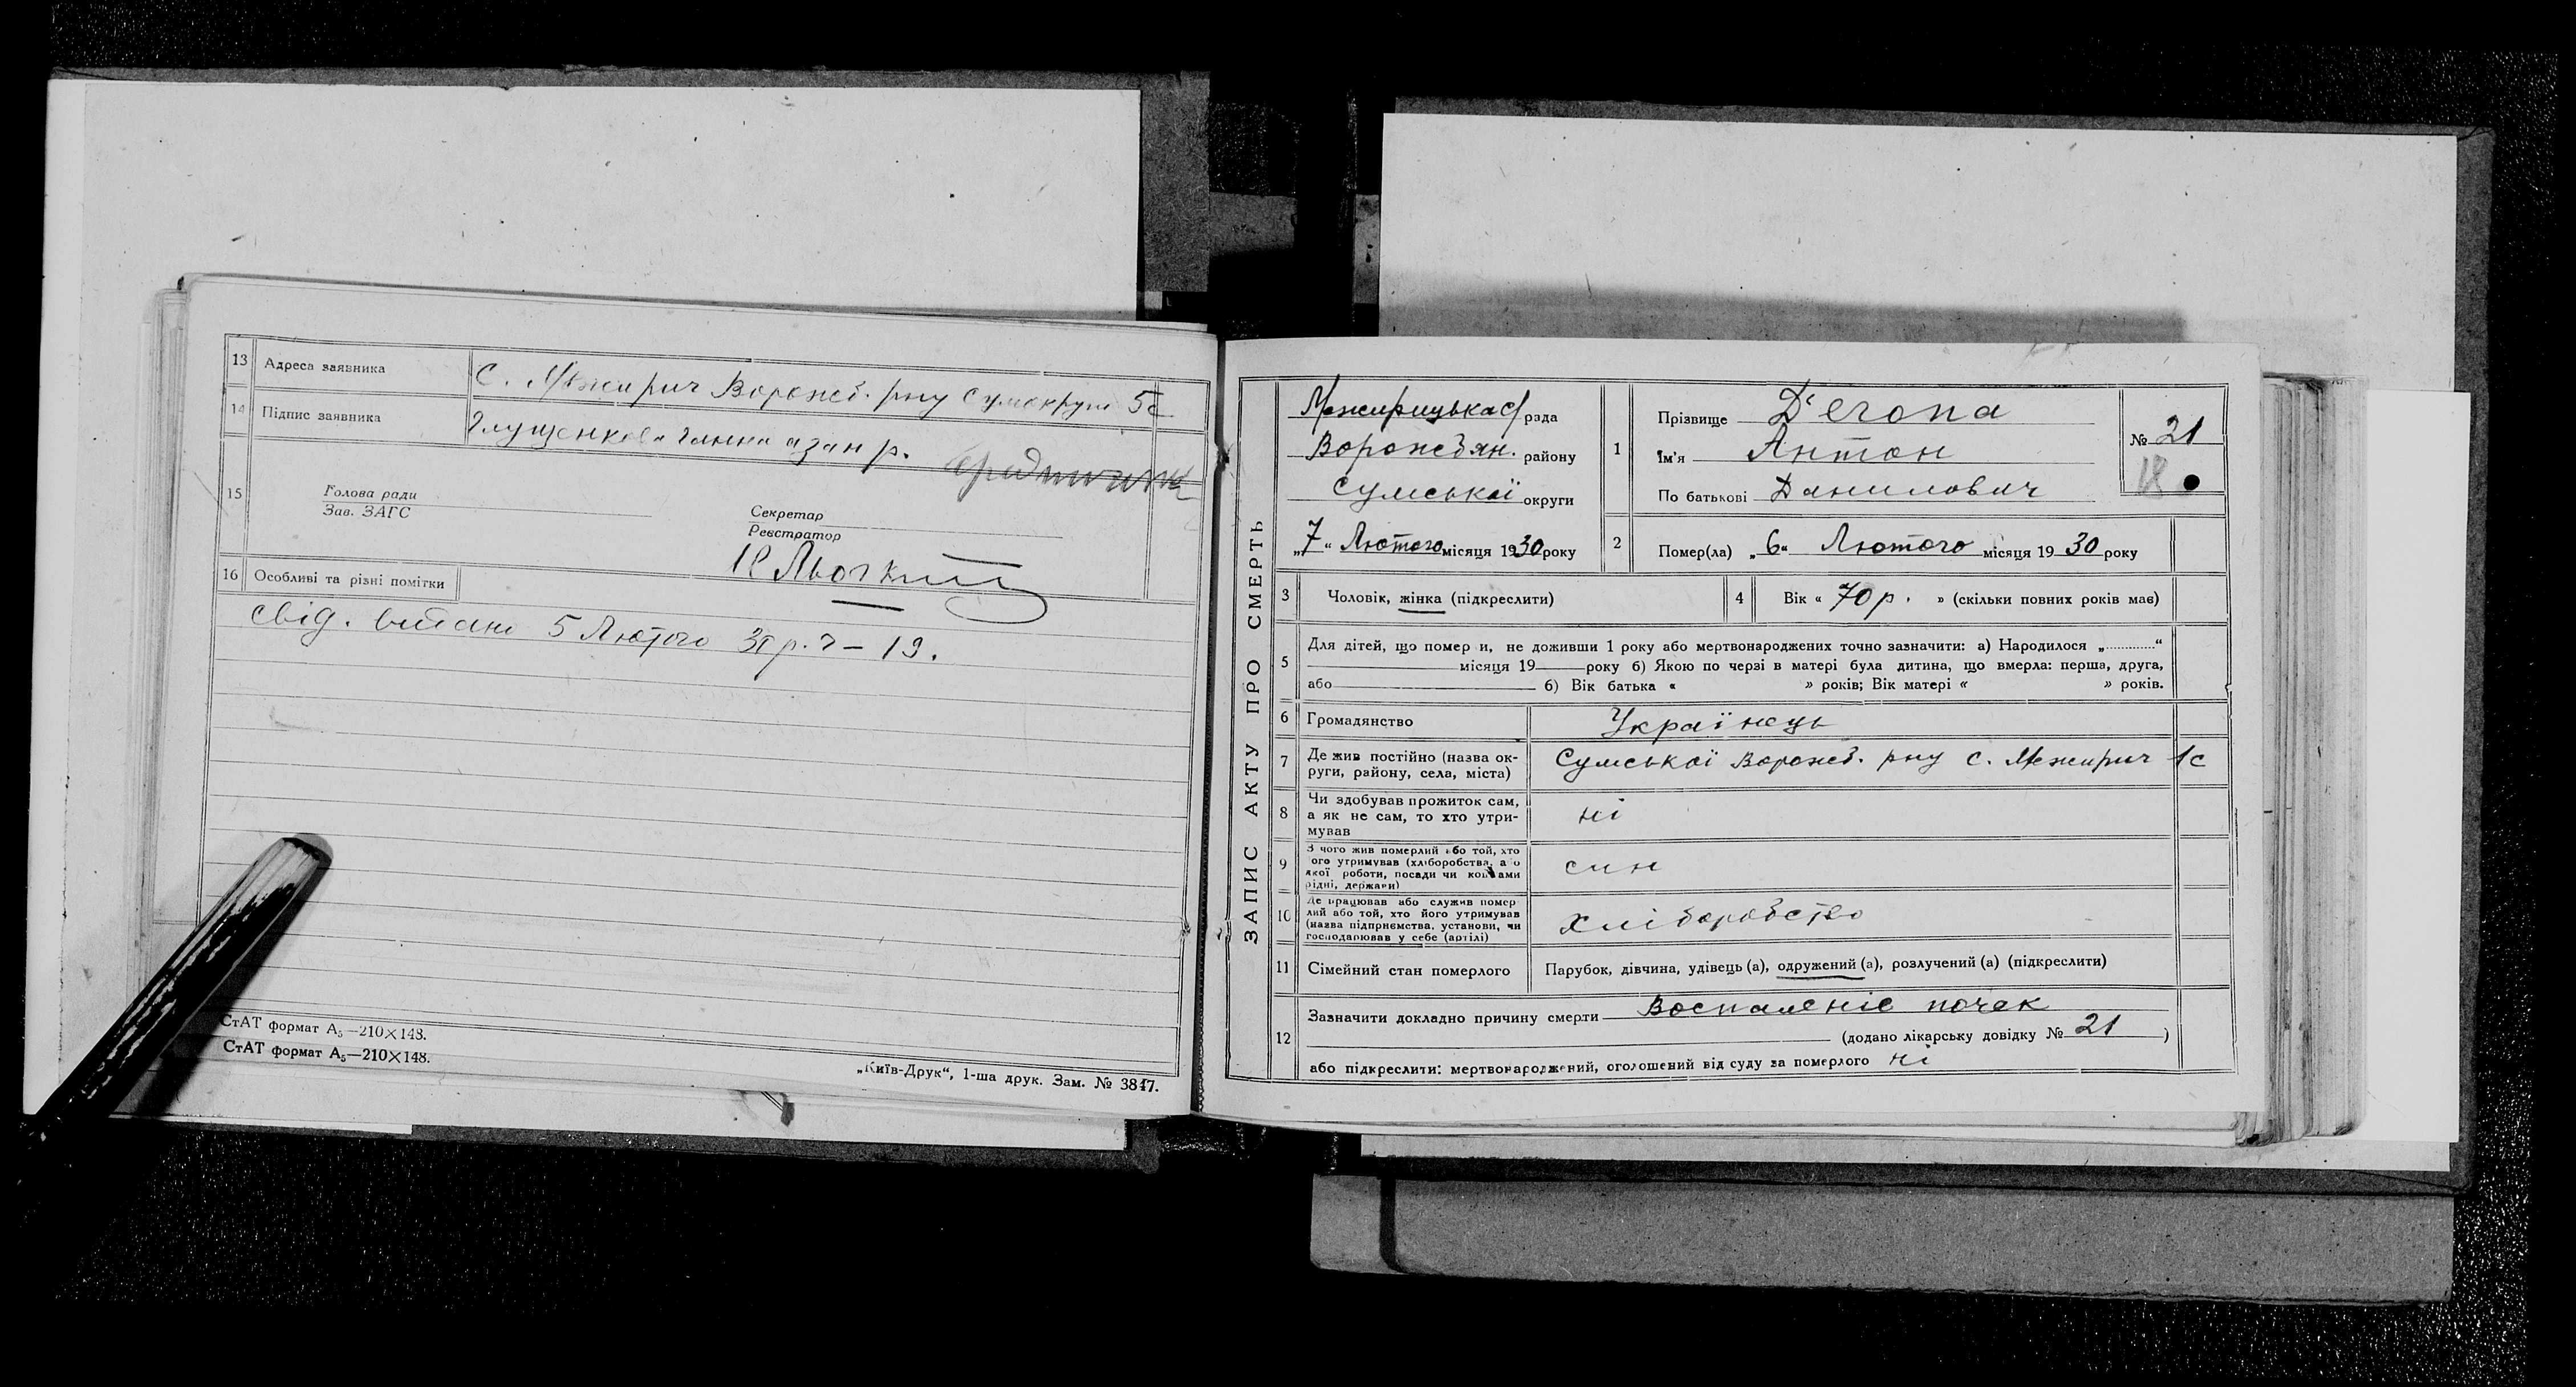 13 Адреса заявника с. Межирич Ворожб. рну Сумокруги 5с
14 Підпис заявника Глущенкова Ганна за н р.
15 Голова ради
Зав. ЗАГС
Секретар
Реєстратор
16 Особливі та різні помітки
свід. видано 5 Лютого 30 р. ч – 19.
СтАТ формат А5—210×148.
СтАТ формат А5—210×148.
„Київ-Друк“, 1-ша друк. Зам. № 3847.
ЗАПИС АКТУ ПРО СМЕРТЬ
Межирицька с/рада
Ворожбян. району
Сумської округи
„7“ Лютого місяця 1930 року
1 Прізвище Д'егопа
Ім'я Антон
По батькові Данилович
№ 21
18
2 Помер(ла) „6“ Лютого місяця 1930 року
3 Чоловік, жінка (підкреслити)
4 Вік « 70 р. » (скільки повних років має)
5 Для дітей, що померли, не доживши 1 року або мертвонароджених точно зазначити: а) Народилося „.............“
місяця 19 року б) Якою по черзі в матері була дитина, що вмерла: перша, друга,
або б) Вік батька « » років; Вік матері « » років.
6 Громадянство Українець
7 Де жив постійно (назва округи, району, села, міста) Сумської Ворожб. рну с. Межирич 1с
8 Чи здобував прожиток сам,
а як не сам, то хто утри-
мував ні
9 З чого жив померлий або той, хто
його утримував (хліборобства, або
якої роботи, посади чи коштами
рідні, держави) син
10 Де працював або служив помер
лий або той, хто його утримував
(назва підприємства, установи, чи
господарював у себе (артілі) Хліборобство
11 Сімейний стан померлого Парубок, дівчина, удівець (а), одружений (а), розлучений (а) (підкреслити)
12 Зазначити докладно причину смерти Воспаленіе почек
(додано лікарську довідку № 21 )
або підкреслити: мертвонароджений, оголошений від суду за померлого ні